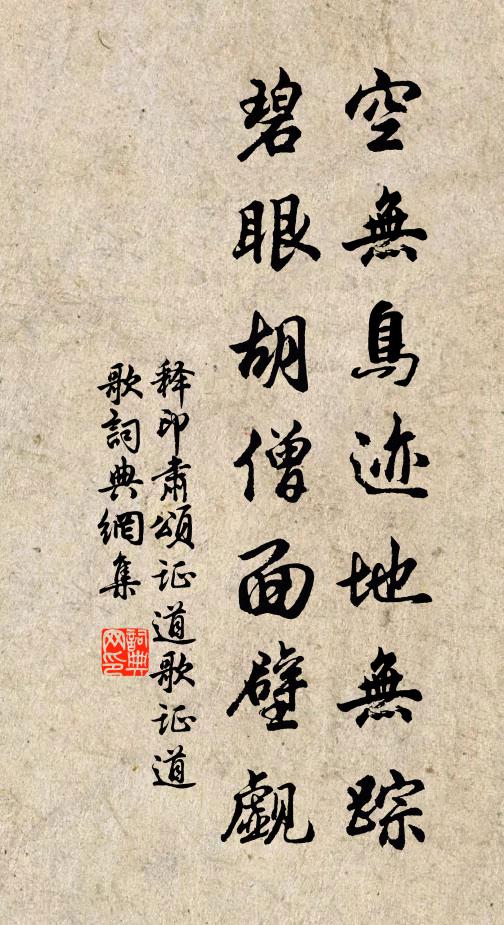 空無鳥迹地無踪
碧眼胡僧面壁觑
释印肅頌证道歌证道
歌詞典網集
詞典网印